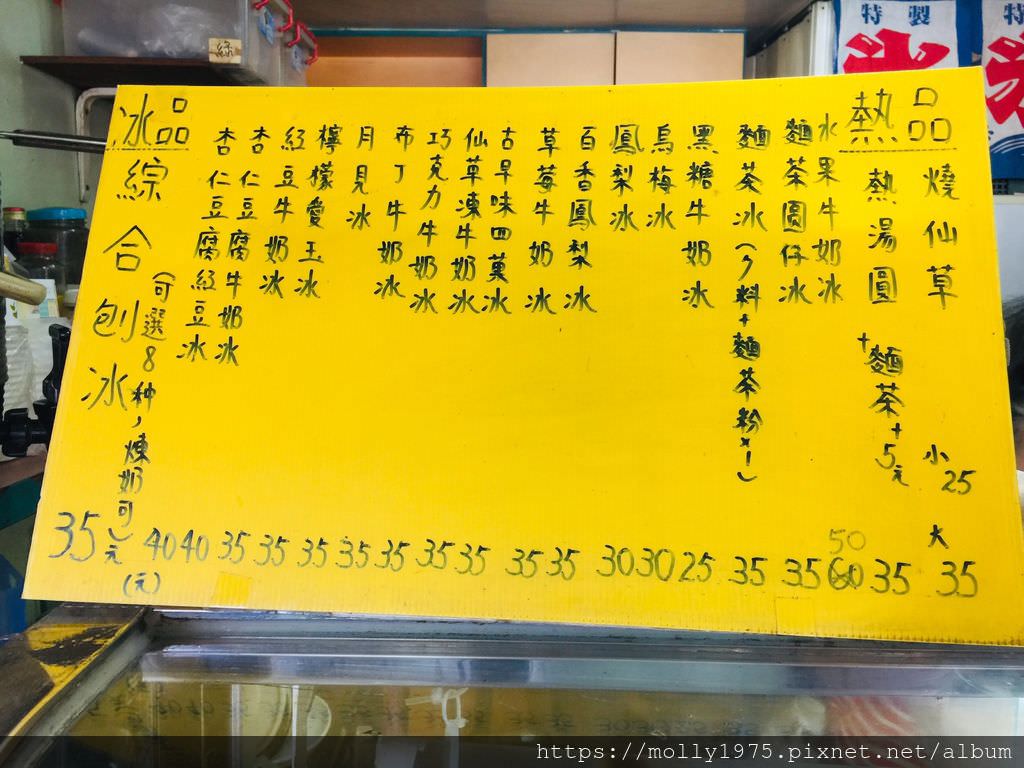 冰品
綜合刨冰
(可選8种,煉奶可)
35元
杏仁豆腐紅豆冰 40(元)
杏仁豆腐牛奶冰 40
紅豆牛奶冰 35
檸檬愛玉冰 35
月見冰 35
布丁牛奶冰 35
巧克力牛奶冰 35
仙草凍牛奶冰 35
古早味四菓冰 35
草莓牛奶冰 35
百香鳳梨冰 35
鳳梨冰 30
烏梅冰 30
黑糖牛奶冰 25
麵茶冰(7料+麵茶粉x1) 35
麵茶圓仔冰 35
水果牛奶冰 50
熱品
熱湯圓 35
+麵茶+5元
燒仙草
小25
大35
特製
氷
特
綜
https://molly1975.pixnet.net/album